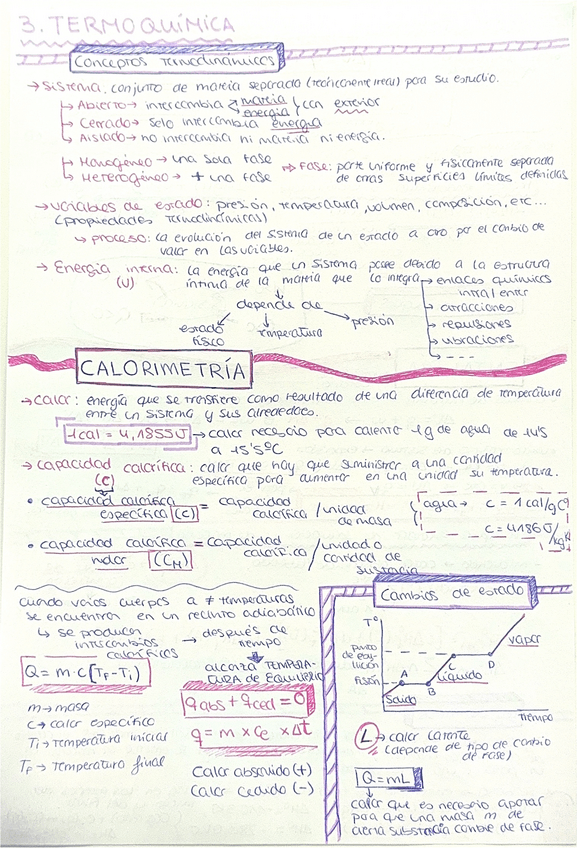 3. TERMOQUÍMICA
Conceptos Termodinámicos
→ Sistema, conjunto de materia separada (teóricamente/real) para su estudio.
→ Abierto → intercambia materia energía con exterior
→ Cerrado → solo intercambia energía
→ Aislado → no intercambia ni materia ni energía.
→ Homogéneo → una sola fase
→ Heterogéneo → + una fase
⇒ Fase: parte uniforme y físicamente separada
de otras superficies límites definidas
→ Variables de estado: presión, temperatura, volumen, composición, etc...
(propiedades termodinámicas)
↳ proceso: la evolución del sistema de un estado a otro por el cambio de
valor en las variables.
→ Energía interna: la energía que un sistema posee debido a la estructura
(U) íntima de la materia que lo integra → enlaces químicos
intra/enter
→ atracciones
→ repulsiones
→ vibraciones
→ ----
depende de
estado
físico
temperatura
presión
CALORIMETRÍA
→ Calor: energía que se transfiere como resultado de una diferencia de temperatura
entre un sistema y sus alrededores.
1cal = 4,1855J → calor necesario para calentar 1g de agua de 14'5
a 15'5ºC
→ Capacidad calorífica: calor que hay que suministrar a una cantidad
(C) específica para aumentar en una unidad su temperatura.
• capacidad calorífica = capacidad / unidad
específica (c) calorífica de masa
agua → c = 1 cal/gC
c = 4186J/kgK
• capacidad calorífica = capacidad / unidad o
molar (CM) calorífica cantidad de
sustancia
cuando varios cuerpos a ≠ temperaturas
se encuentran en un recinto adiabático
↳ se producen → después de
intercambios tiempo
caloríficos
alcanza TEMPERA-
TURA DE EQUILIBRIO
Q = m·c(TF-Ti)
m → masa
c → calor específico
Ti → Temperatura inicial
TF → Temperatura final
qabs + qced = 0
q = m × ce × Δt
Calor absorbido (+)
Calor cedido (-)
Cambios de estado
Tº
punto
de ebu-
llición
fusión
A
B
C
D
Sólido
líquido
vapor
Tiempo
L → calor latente
(depende de tipo de cambio
de fase)
Q = mL
calor que es necesario aportar
para que una masa m de
cierta substancia cambie de fase.